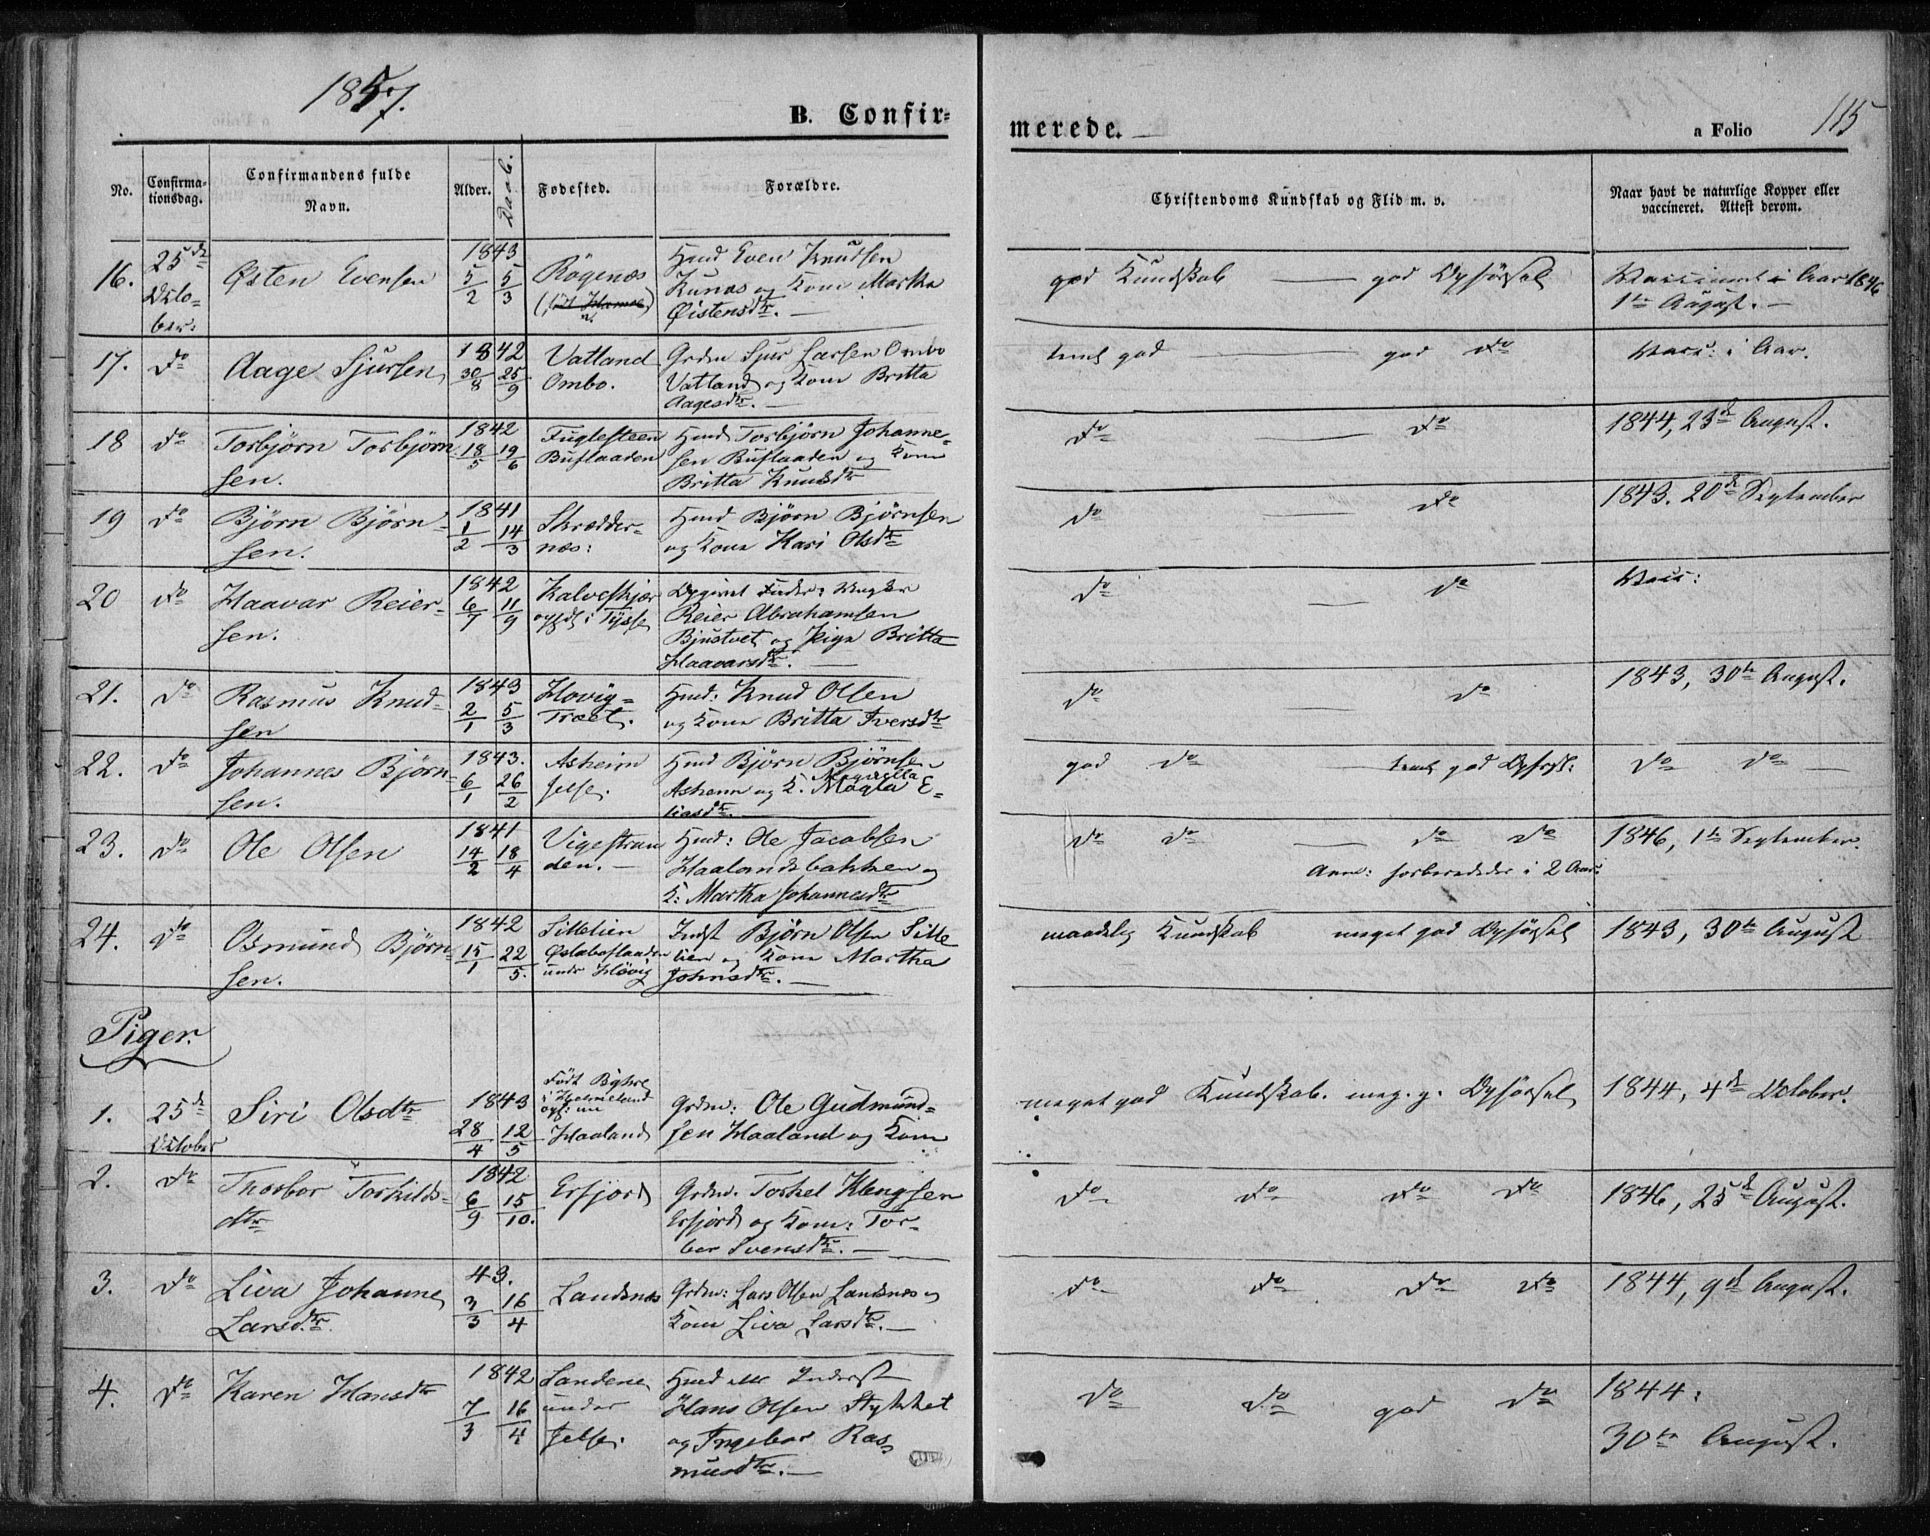 1857.
B. Confir-
merede.
a Folio
115
No.
Confirma-
tionsdag.
Confirmandens fulde
Navn.
Alder.
Daab.
Fødested.
Forældre.
Christendoms Kundskab og Flid m. v.
Naar havt de naturlige Kopper eller
vaccineret. Attest derom.
16.
25de
Octo-
ber.
Østen Evensen
1843
5/2 5/3
Røgenæs
Husmd Even Knudsen
og Kone Martha
Øistensdtr.
god Kundskab — god Opførsel
i Aar 1846
1te August.
17.
Do
Aage Sjursen
1842
30/8 25/9
Vatland
Ombo.
Grdm Sjur Larsen Ombo
Vatland og Kone Britta
Aagesdtr.
teml god — god Do
Vacc: i Aar.
18
Do
Torbjørn Torbjørn
sen.
1842
18/5 19/6
Fuglesteen
Buflaaden
Husmd Torbjørn Johanne-
sen Buflaaden og Kone
Britta Knudsdtr
Do — Do
1844, 23d August.
19
Do
Bjørn Bjørn-
sen.
1841
1/2 14/3
Skrædder-
næs:
Husmd Bjørn Bjørnsen
og Kone Kari Olsdtr
Do — Do
1843. 20de September
20
Do
Haavar Reier-
sen.
1842
6/7 11/9
Kalveskjær
opfdt i Tysse
Reier Abrahamsen
Bjustvet og Pige Britta
Haavarsdtr.
Do — Do
Vacc:
21.
Do
Rasmus Knud-
sen
1843
2/1 5/3
Hovig-
Træet.
Husmd: Knud Olsen
og Kone Britta Iversdtr
Do — Do
1843, 30te August.
22.
Do
Johannes Bjørn-
sen.
1843.
6/1 26/2
Asheim
Jelse.
Husmd Bjørn Bjørnsen
Asheim og K. Magla E-
liasdtr.
god Do — temml god Opførs:
Do Do
23.
Do
Ole Olsen
1841
14/2 18/4
Vigestran
den.
Husmd: Ole Jacobsen
Haalandsbakken og
K: Martha Johannesdtr
Do Do — Do Do
Anm: forberededes i 2 Aar.
1846, 1te September.
24.
Do
Osmund Bjørn-
sen.
1842
15/1 22/5.
Sittelien
under Høvig
Indst Bjørn Olsen Sitte
lien og Kone Martha
Johnsdtr.
maadelig Kundskab meget god Opførsel
1843, 30te August
Piger.
1.
25de
October
Siri Olsdtr
1843
28/4 12/5
Født
i Hjelmeland
opf: nu
Haaland
Grdm: Ole Gudmund-
sen Haaland og Kone
meget god Kundskab. meg. g. Opførsel
1844, 4de October.
2.
Do
Thorbor Torkilds-
dtr
1842
6/9 15/10.
Erfjord
Grdm. Torkel Klengsen
Erfjord og Kone: Tor-
bor Svensdtr.
Do Do Do Do
1846, 25de August.
3.
Do
Liva Johanne
Larsdtr.
43.
3/3 16/4
Landsnæs
Grdm: Lars Olsen Landsnæs og
Kone Liva Larsdtr.
Do Do Do Do
1844, 9de August.
4.
Do
Karen Hansdtr
1842
7/3 16/4
Sandene
under
Jelse.
Husmd ell Inderst
Hans Olsen Stykket
og Ingebor Ras-
musdtr.
Do Do god Do
1844:
30te August.